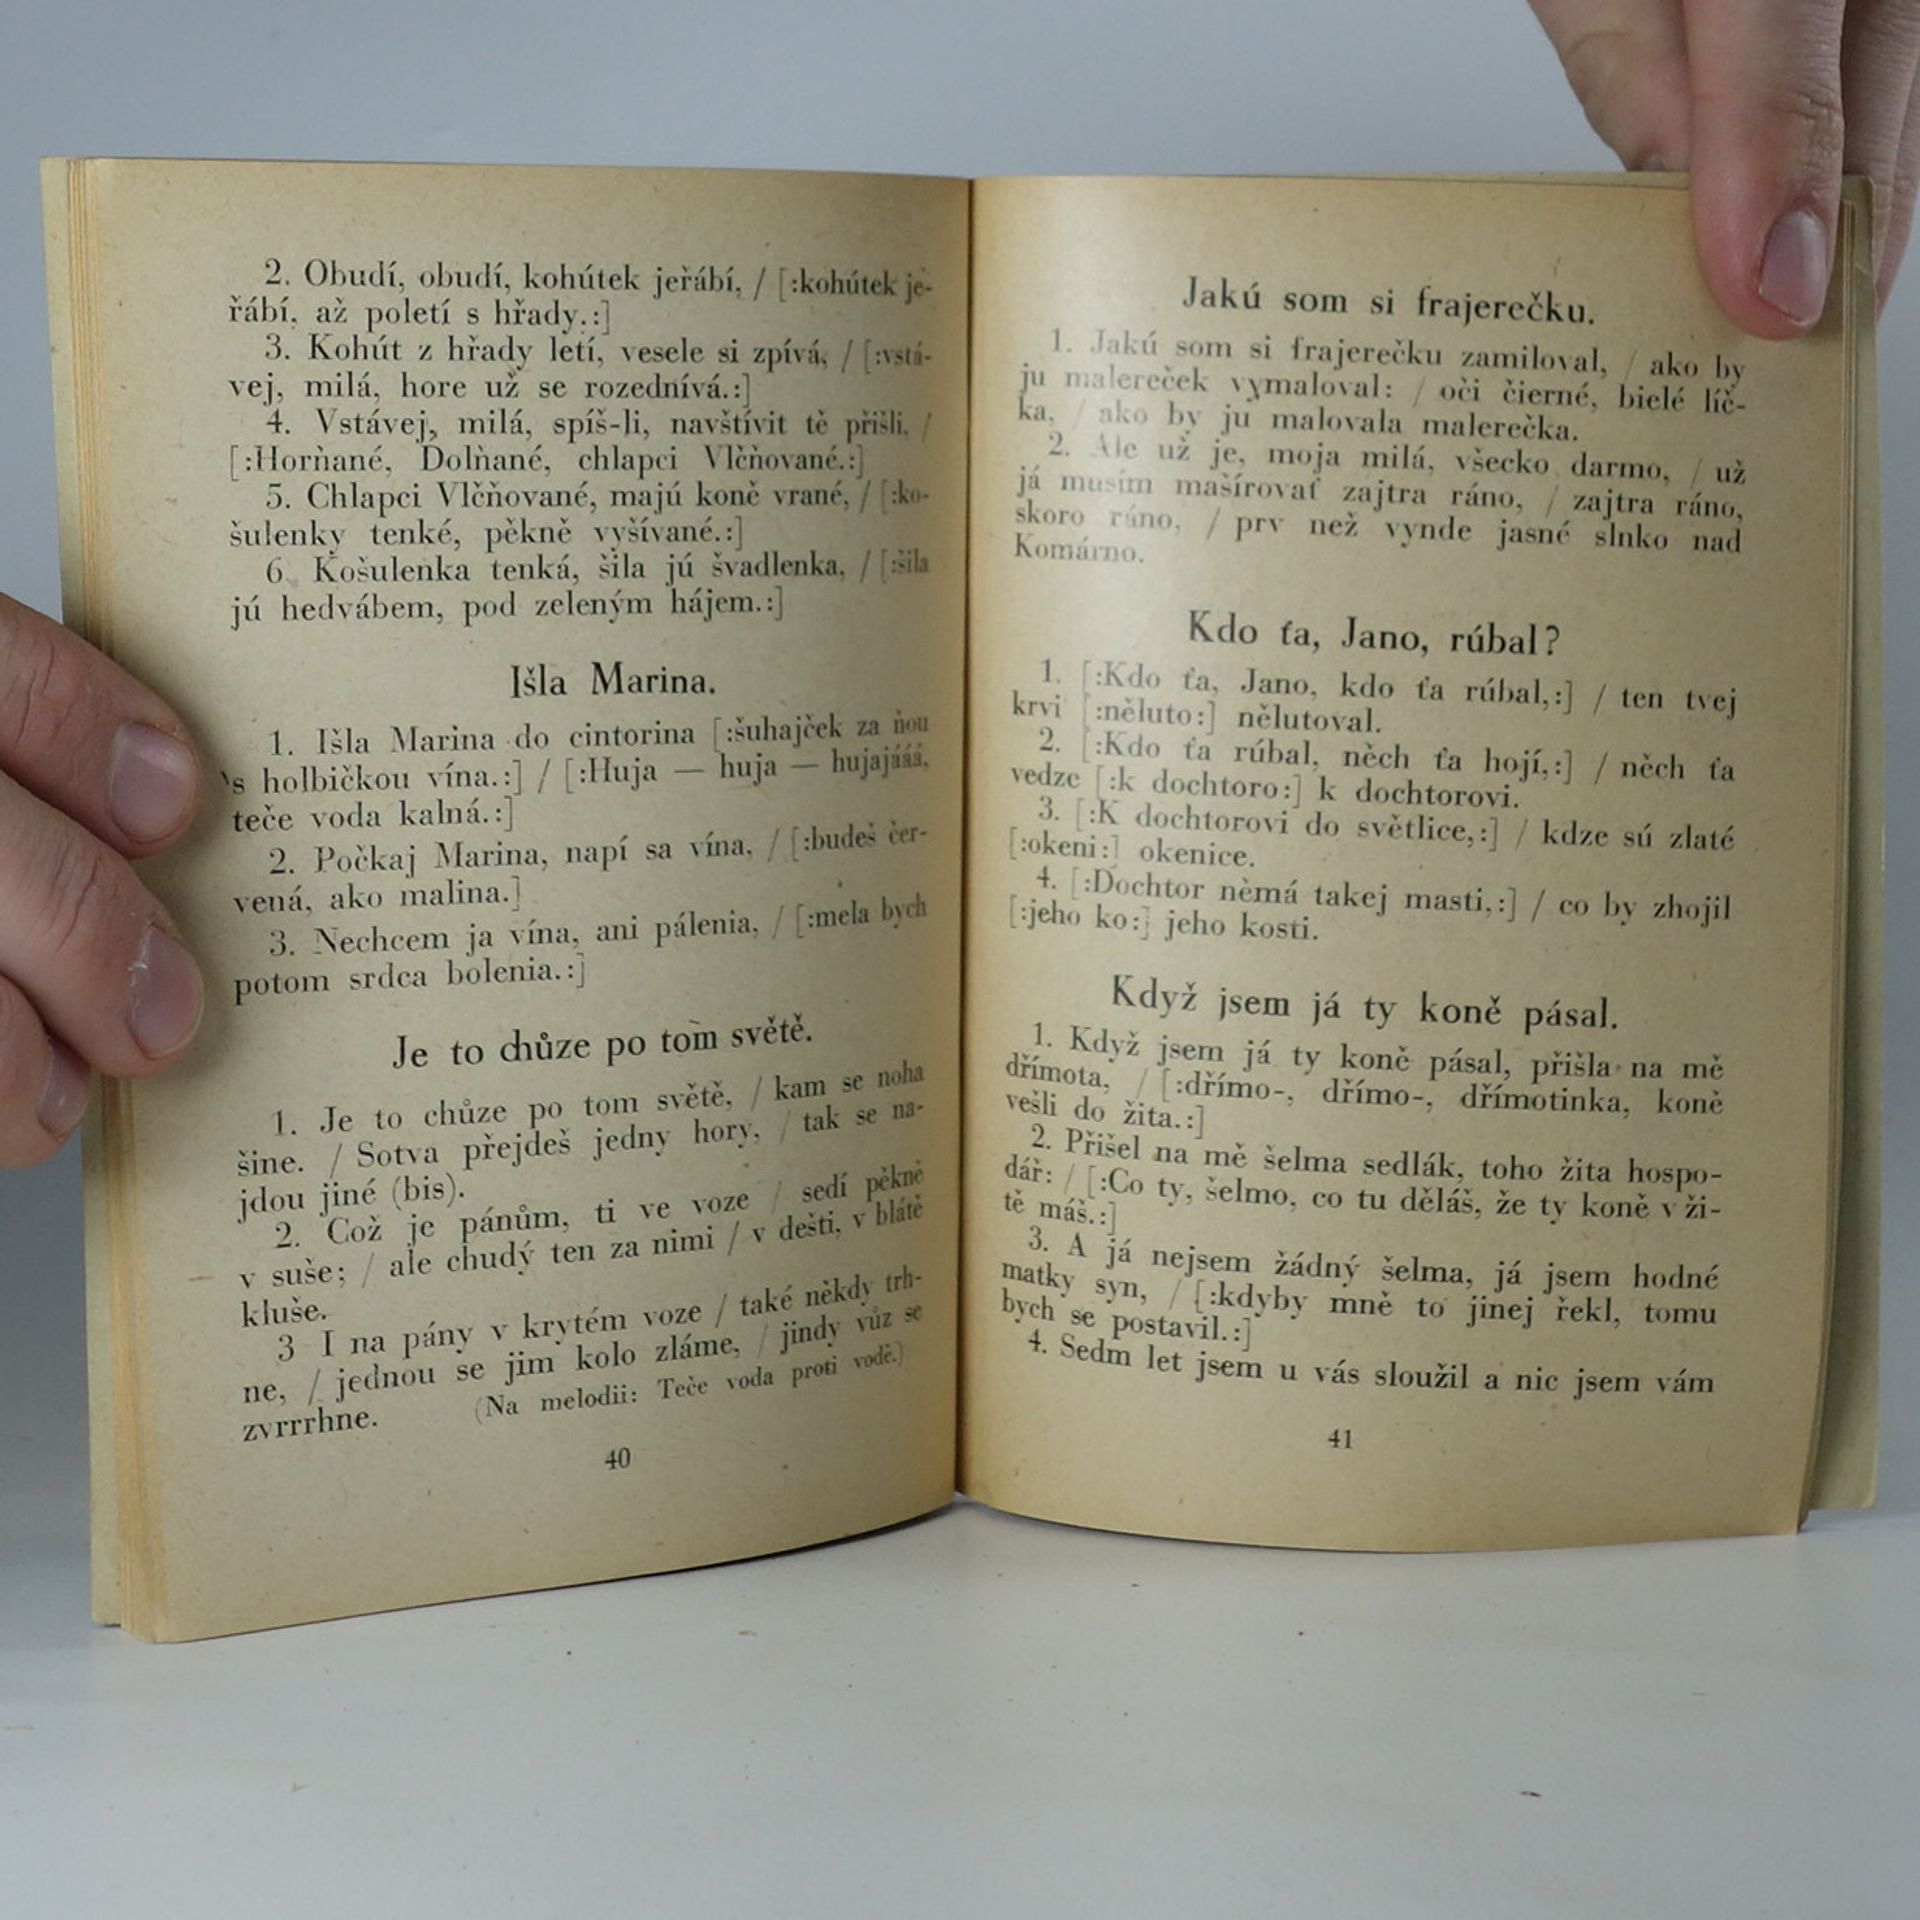 2. Obudí, obudí, kohútek jeřábí, / [:kohútek je-
řábí, až poletí s hřady.:]
3. Kohút z hřady letí, vesele si zpívá, / [:vstá-
vej, milá, hore už se rozednívá.:]
4. Vstávej, milá, spíš-li, navštívit tě přišli. /
[:Horňané, Dolňané, chlapci Vlčňované.:]
5. Chlapci Vlčňované, majú koně vrané, / [:ko-
šulenky tenké, pěkně vyšívané.:]
6. Košulenka tenká, šila jú švadlenka, / [:šila
jú hedvábem, pod zeleným hájem.:]
Išla Marina.
1. Išla Marina do cintorina [:šuhajček za ňou
's holbičkou vína.:] / [:Huja — huja — hujajááá,
teče voda kalná.:]
2. Počkaj Marina, napí sa vína, / [:budeš čer-
vená, ako malina.]
3. Nechcem ja vína, ani pálenia, / [:mela bych
potom srdca bolenia.:]
Je to chůze po tom světě.
1. Je to chůze po tom světě, / kam se noha
šine. / Sotva přejdeš jedny hory, / tak se na-
jdou jiné (bis).
2. Což je pánům, ti ve voze / sedí pěkně
v suše; / ale chudý ten za nimi / v dešti, v blátě
kluše.
3 I na pány v krytém voze / také někdy trh-
ne, / jednou se jim kolo zláme, / jindy vůz se
zvrrrhne. (Na melodii: Teče voda proti vodě.)
40
Jakú som si frajerečku.
1. Jakú som si frajerečku zamiloval, / ako by
ju malereček vymaloval: / oči čierné, bielé líč-
ka, / ako by ju malovala malerečka.
2. Ale už je, moja milá, všecko darmo, / už
já musím mašírovať zajtra ráno, / zajtra ráno,
skoro ráno, / prv než vynde jasné slnko nad
Komárno.
Kdo ťa, Jano, rúbal?
1. [:Kdo ťa, Jano, kdo ťa rúbal,:] / ten tvej
krvi [:něluto:] nělutoval.
2. [:Kdo ťa rúbal, něch ťa hojí,:] / něch ťa
vedze [:k dochtoro:] k dochtorovi.
3. [:K dochtorovi do světlice,:] / kdze sú zlaté
[:okeni:] okenice.
4. [:Dochtor němá takej masti,:] / co by zhojil
[:jeho ko:] jeho kosti.
Když jsem já ty koně pásal.
1. Když jsem já ty koně pásal, přišla na mě
dřímota, / [:dřímo-, dřímo-, dřímotinka, koně
vešli do žita.:]
2. Přišel na mě šelma sedlák, toho žita hospo-
dář: / [:Co ty, šelmo, co tu děláš, že ty koně v ži-
tě máš.:]
3. A já nejsem žádný šelma, já jsem hodné
matky syn, / [:kdyby mně to jinej řekl, tomu
bych se postavil.:]
4. Sedm let jsem u vás sloužil a nic jsem vám
41